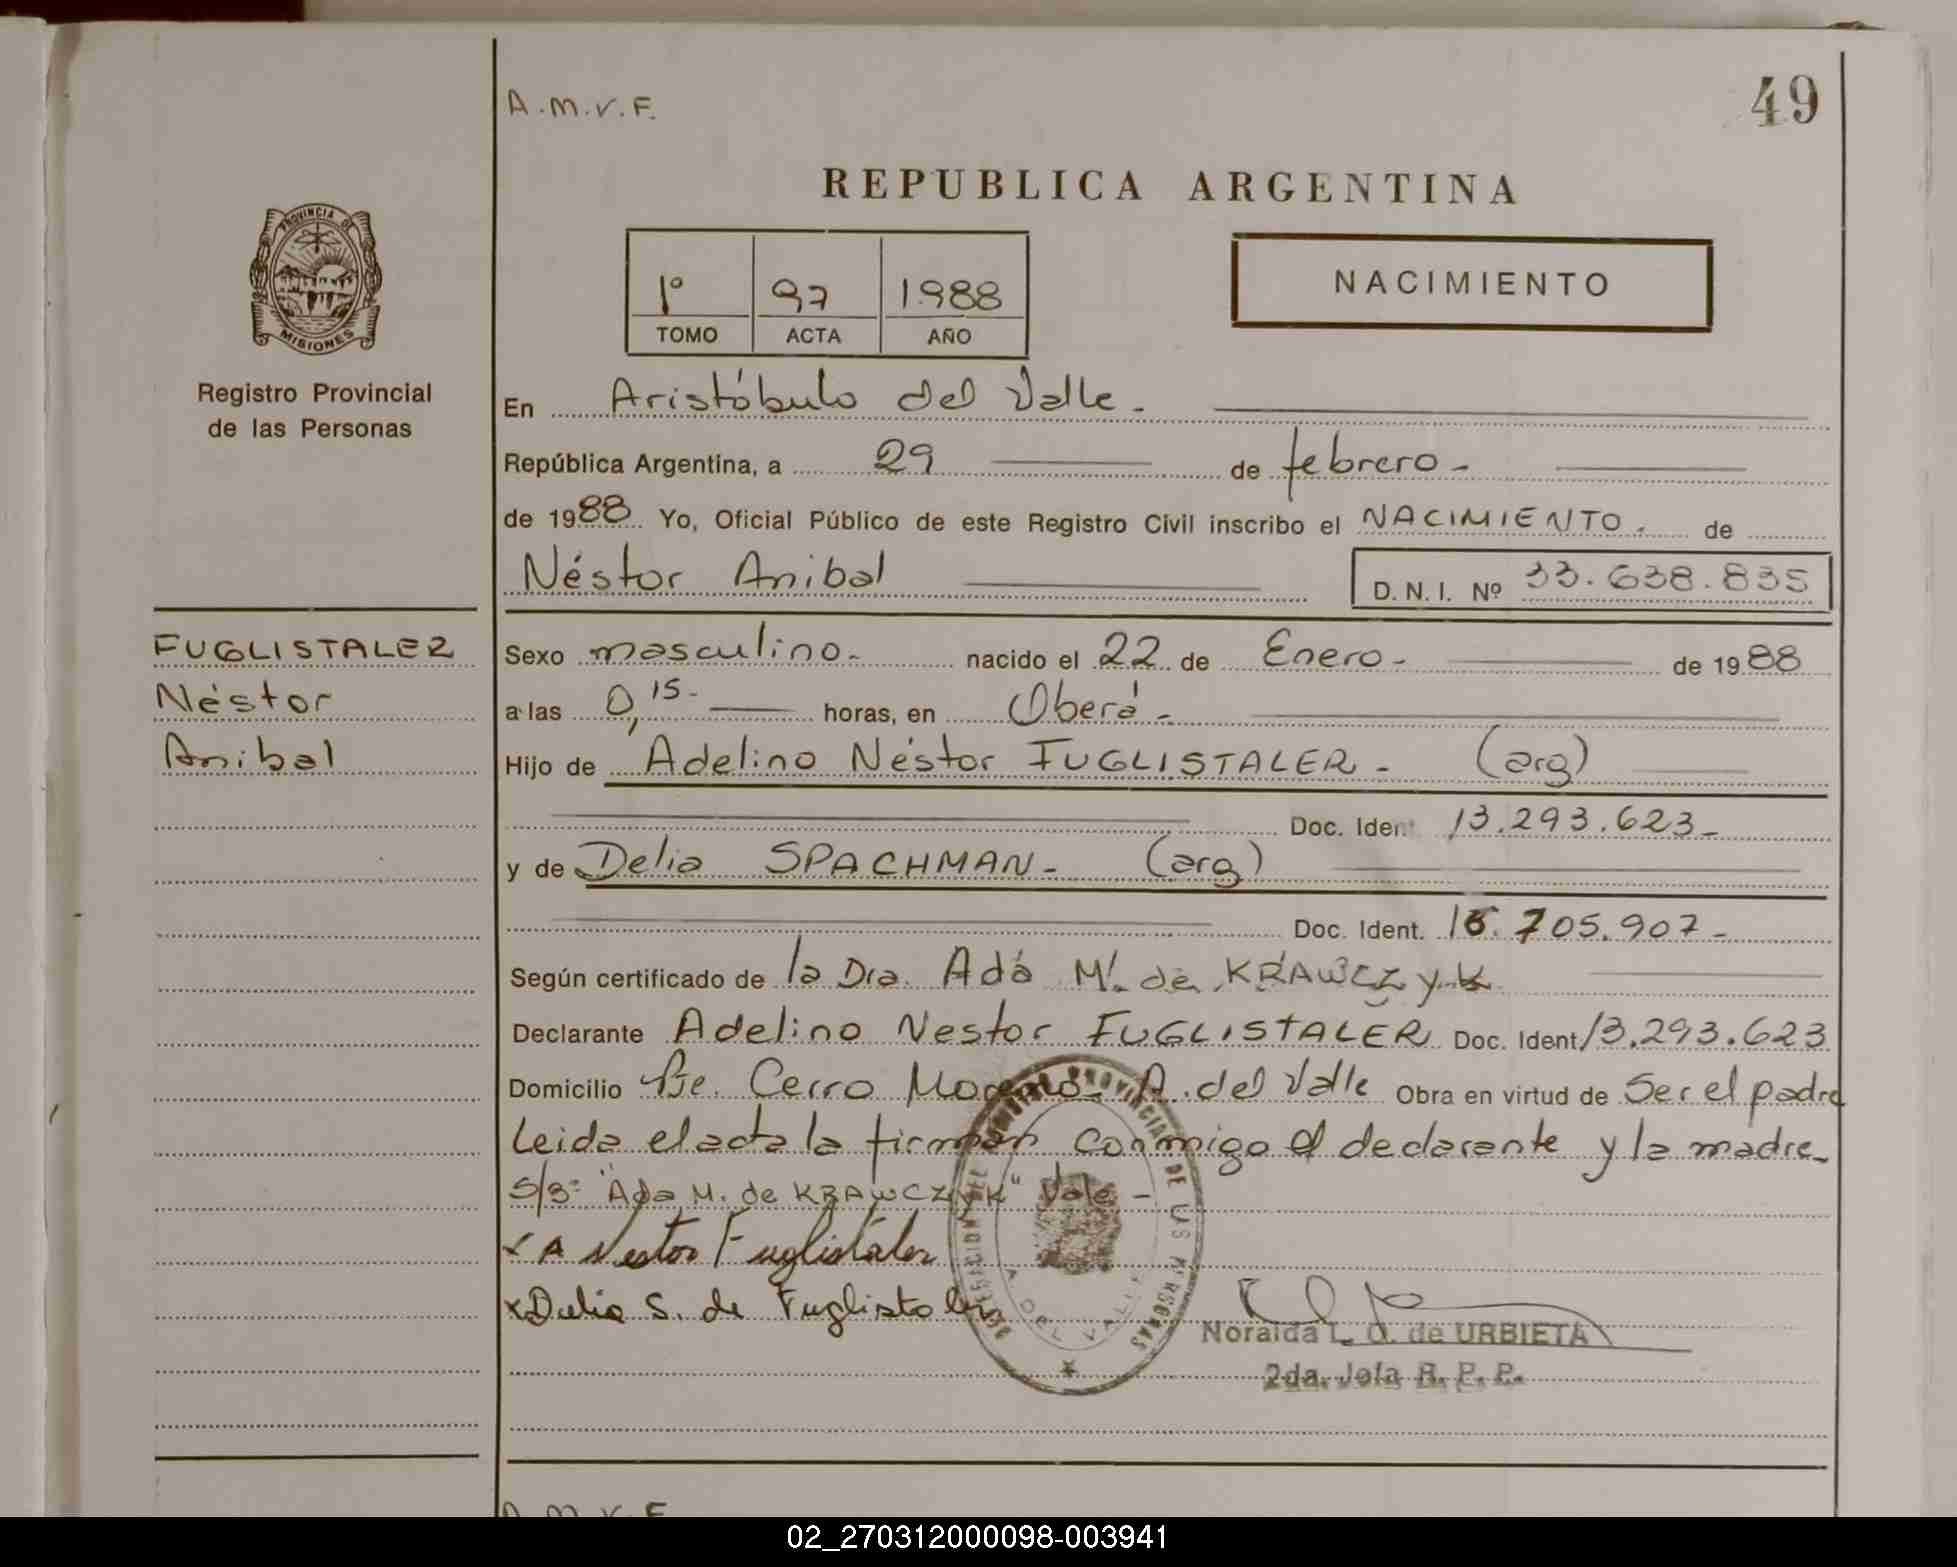 A.M.V.F.
49
REPUBLICA ARGENTINA
PROVINCIA DE
MISIONES
Registro Provincial
de las Personas
1º 97 1988
TOMO ACTA AÑO
NACIMIENTO
En Aristóbulo del Valle.
República Argentina, a 29 de febrero -
de 1988 Yo, Oficial Público de este Registro Civil inscribo el NACIMIENTO. de
Néstor Anibal D. N. I. Nº 33.638.835
FUGLISTALER
Néstor
Anibal
Sexo masculino.- nacido el 22 de Enero - de 1988
a las 0,15- horas, en Oberá -
Hijo de Adelino Néstor FUGLISTALER - (arg)
Doc. Ident 13.293.623-
y de Delia SPACHMAN - (arg)
Doc. Ident. 16.705.907-
Según certificado de la Dra. Ada M. de KRAWCZyK
Declarante Adelino Nestor FUGLISTALER Doc. Ident 13.293.623
Domicilio Pje. Cerro Moreno. A. del Valle Obra en virtud de Ser el padre
Leida el acta la firman conmigo el declarante y la madre -
S/B: "Ada M. de KRAWCZYK" Vale -
x A Nestor Fuglistaler
x Delia S. de Fuglistaler
DELEGACION DEL REGISTRO PROVINCIAL DE LAS PERSONAS
A. DEL VALLE
Noraida L. O. de URBIETA
2da. Jefa R. P. P.
A.M.V.F.
02_270312000098-003941